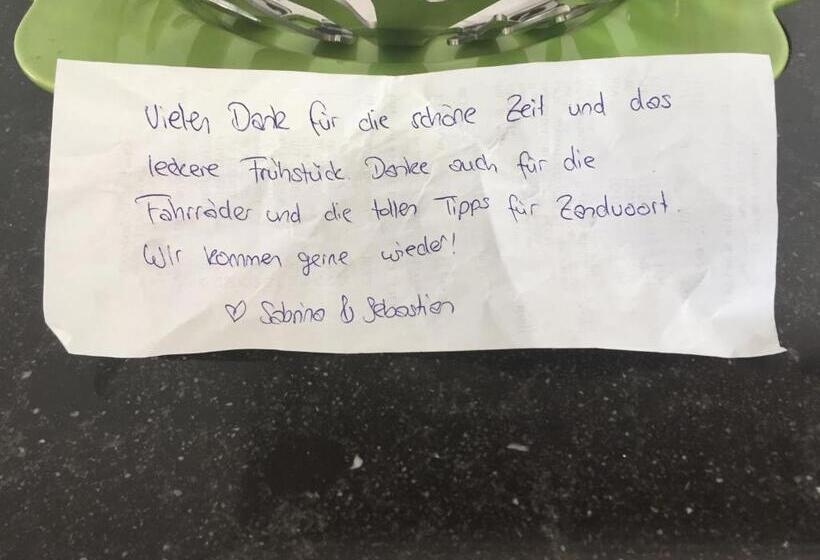 Vielen Dank für die schöne Zeit und das
leckere Frühstück. Danke auch für die
Fahrräder und die tollen Tipps für Zandvoort.
Wir kommen gerne wieder!
♡ Sabrina & Sebastian